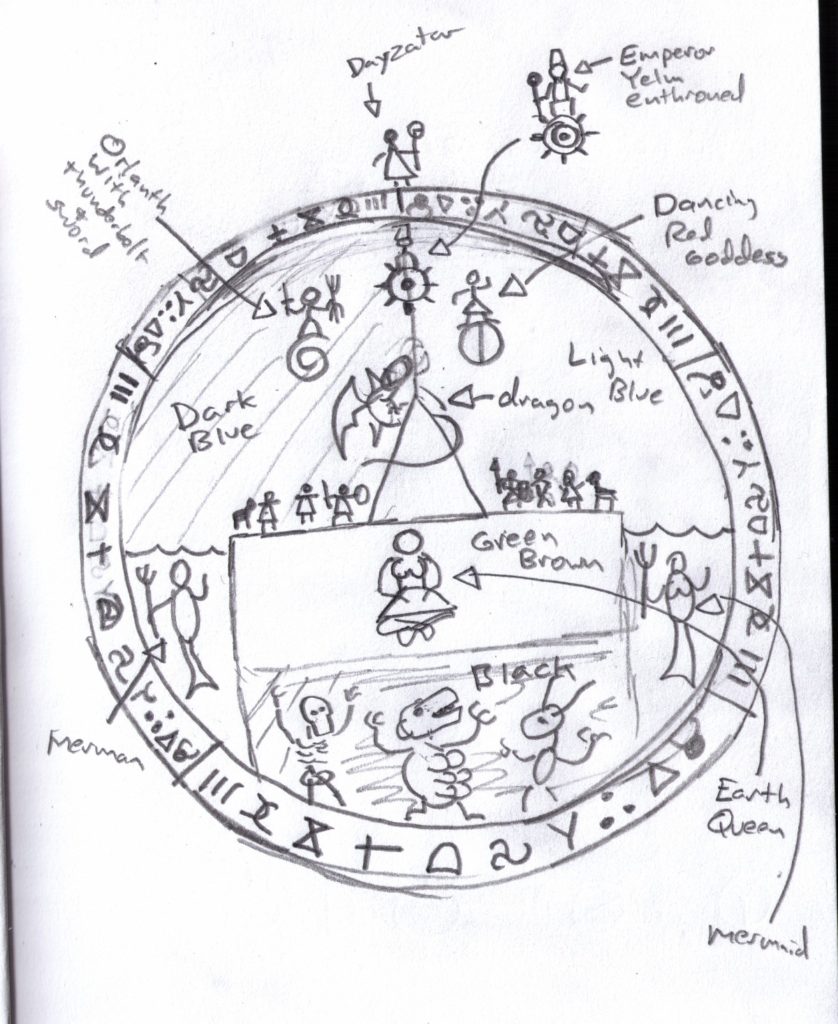 Dayzatar
Emperor
Yelm
enthroned
Orlanth
with
thunderbolt
+
sword
Dancing
Red
Goddess
Light
Blue
Dark
Blue
dragon
Green
Brown
Black
Merman
Earth
Queen
Mermaid